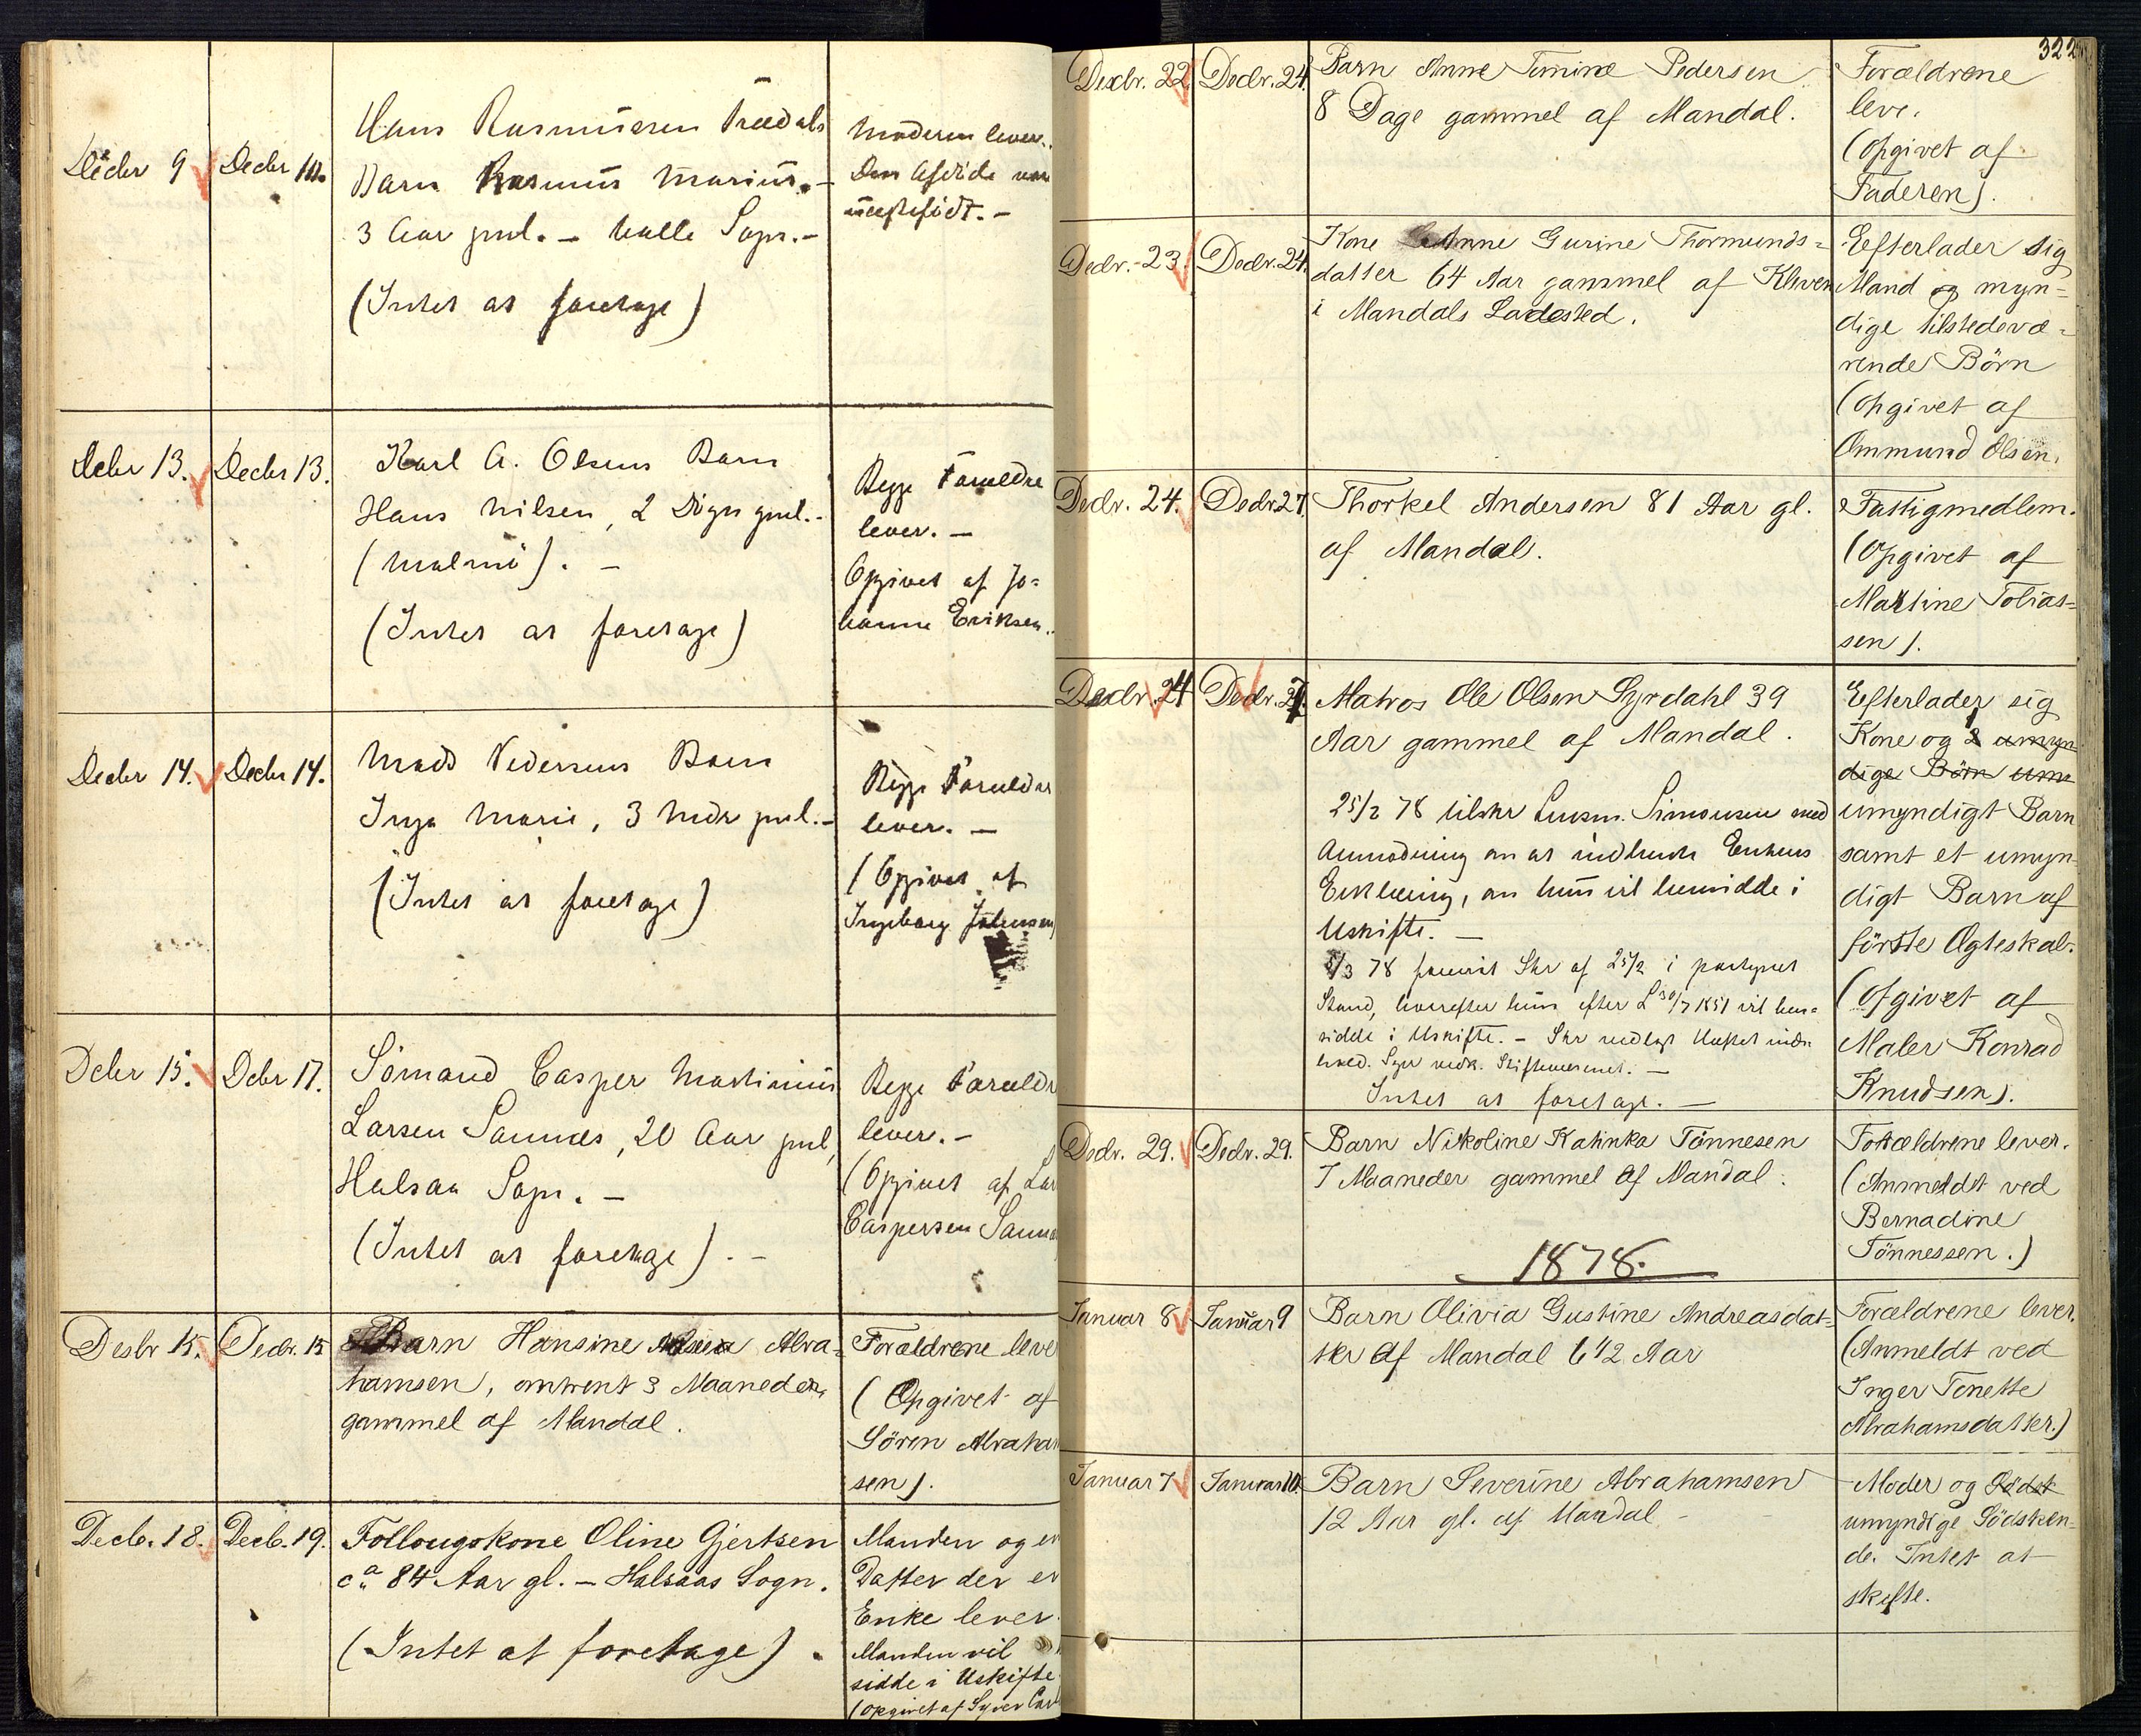 Decbr 9
Decbr 10.
Hans Rasmusen
Barn Rasmus Marius. –
3 Aar gml. – Halle Sogn. –
(Intet at foretage)
Moderen lever.
Den Afdöde var
uægtefödt. –
Decbr 13.
Decbr 13.
Karl A. Olsens Barn
Hans Nilsen, 2 Dögn gml. –
(Malmö). –
(Intet at foretage)
Begge Forældre
lever. –
Opgivet af Jo=
hanne Eriksen.
Decbr 14.
Decbr 14.
Mads Pedersens Barn
Inga Marie, 3 Mdr gml. –
(Intet at foretage)
Begge Forældre
lever. –
(Opgivet af
Ingeborg Johnsen)
Decbr 15.
Decbr 17.
Sömand Casper Martinius
Larsen Sannes, 20 Aar gml,
Halsaa Sogn. –
(Intet at foretage). –
Begge Forældr
lever. –
(Opgivet af Lar
Caspersen Sanne
Desbr 15.
Decbr. 15
Barn Hansine Abra=
hamsen, omtrent 3 Maaneder
gammel af Mandal.
Forældrene leve
(Opgivet af
Sören Abraham
sen).
Decb. 18.
Decb. 19.
Follougskone Oline Gjertsen
ca 84 Aar gl. – Halsaas Sogn.
(Intet at foretage).
Manden og en
Datter der er
Enke lever.
Manden vil
sidde i Uskifte
(opgivet af Syver Carl
322
Decbr. 22
Decbr. 24.
Barn Anne Tomine Pedersen
8 Dage gammel af Mandal.
Forældrene
leve.
(Opgivet af
Faderen).
Decbr. 23
Decbr. 24.
Kone Anne Gurine Thormunds=
datter 64 Aar gammel af Kleven
i Mandals Ladested.
Eefterlader sig
Mand og myn=
dige tilstedevæ=
rende Börn
(Opgivet af
Ommund Olsen.
Decbr. 24.
Decbr. 27.
Thorkel Andersen 81 Aar gl.
af Mandal.
Fattigmedlem.
(Opgivet af
Martine Tobias=
sen).
Decbr. 24
Decbr. 27.
Matros Ole Olsen Syrdahl 39
Aar gammel af Mandal.
25/2 78 tilskr Lensm. Simonsen med
Anmodning om at indhente Enkens
Erklæring, om hun vil hensidde i
Uskifte. –
5/3 78 Skr af 25/2 i paategnet
Stand, hvorefter hun efter L 30/7 1851 vil hen=
sidde i Uskifte. – Skr vedlagt
Intet at foretage. –
Eefterlader sig
Kone og 1 umyn
dige Börn
umyndigt Barn
samt et umyn
digt Barn af
förste Ægteskab.
(Opgivet af
Maler Konrad
Knudsen).
Decbr. 29.
Decbr. 29.
Barn Nikoline Katinka Tönnesen
7 Maaneder gammel af Mandal.
Forældrene lever.
(Anmeldt ved
Bernadine
Tönnessen.)
1878.
Januar 8
Januar 9
Barn Olivia Gustine Andreasdat=
ter af Mandal 6 1/2 Aar
Forældrene lever.
(Anmeldt ved
Inger Tonette
Abrahamsdatter.)
Januar 7
Januar 10.
Barn Severine Abrahamsen
12 Aar gl. af Mandal –
Moder og
umyndige Södsken=
de. Intet at
skifte.